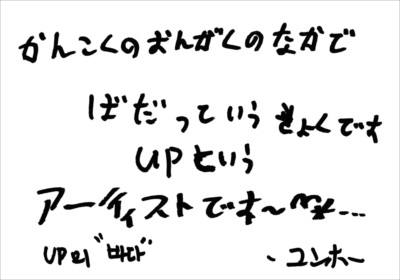 かんこくのおんがくのなかで
ばだっていうきょくです
UPという
アーティストです〜
UPの"바다"
- ユンホー